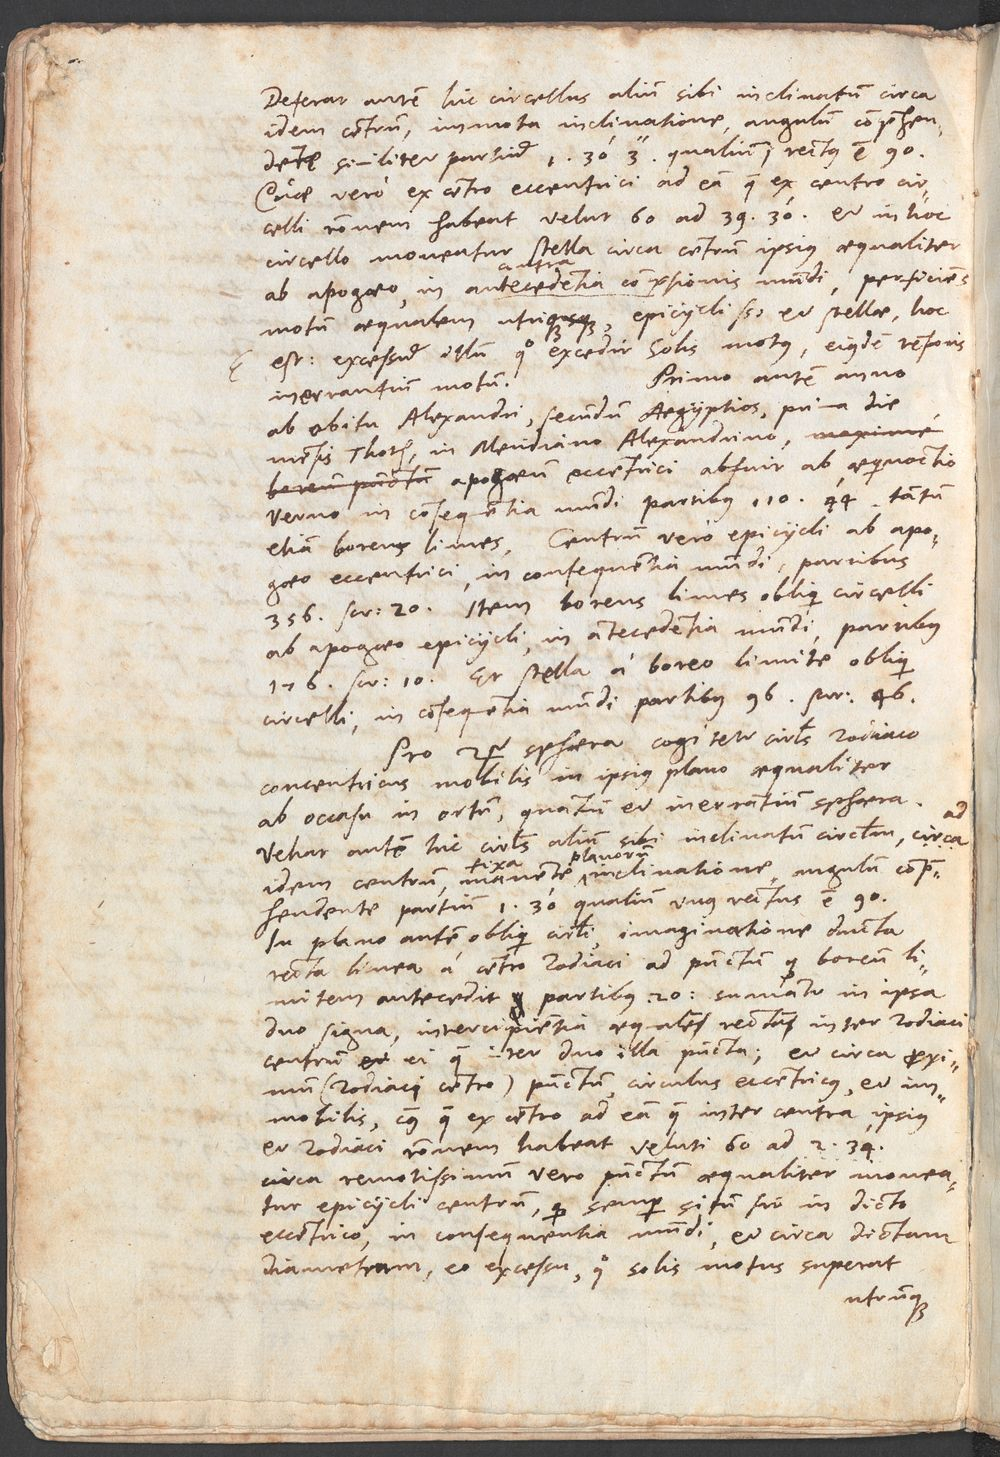 Deferat autē hic circellus aliū sibi inclinatū circa
idem cētrū, immota inclinatione, angulū cōp̄hen„
dēte similiter partiū 1 . 30' 3''. qualiū rectꝰ ē 90 .
vero ex cētro eccentrici ad eā q̄ ex centro cir„
celli rōnem habeat velut 60 ad 39 . 30 . et in hoc
circello moveatur stella circa cētrū ipsiꝰ æqualiter
contra
ab apogæo, in antecedētia mūdi, perficiens
motū æqualem epicycli et stellæ, hoc
est: excessū illū q° excedit Solis motꝰ,
inerrantiū motū. Primo autē anno
ab obitu Alexandri, secūdū Aegyptios, prima die
mēsis Thoth, in Meridiano Alexandrino, maxime
boreū punctū apogæū eccētrici abfuit ab æqnoctio
verno in cōsequētia mūdi partibꝰ 110 . 44 . tātū
etiā boreus limes, Centrū vero epicycli ab apo„
gæo eccentrici, in consequentia mūdi, partibus
356 . scr: 20 . Item boreus limes obliqi circelli
ab apogæo epicycli, in ātecedētia mūdi, partibꝰ
176 . scr: 10 . Et stella à boreo limite obliqi
circelli, in cōsequētia mūdi partibꝰ 96 . scr: 46 .
Pro sphæra cogitetur circls Zodiaco
concentricus mobilis in ipsiꝰ plano æqualiter
ab occasu in ortū, quātū et inerrātiū sphæra .
ad
Vehat autē hic circls aliū sibi inclinatū circlm, circa
fixa planorū
idem centrum, manēte inclinatione, angulū cōp̄„
hendente partiū 1 . 30 qualiū unꝰ rectus ē 90 .
In plano autē obliqi circli, imaginatione ducta
recta linea à cētro Zodiaci ad pūctū q boreū li„
mitem antecedit partibus 20: sumātur in ipsa
duo signa, intercipiētia æqualē rectā inter Zodiaci
centrū ei q̄ iter duo illa pūcta; et circa proxi„
mū (Zodiaci cētro) pūctū, circulus eccētricꝰ, et im„
mobilis, cuiꝰ q̄ ex cētro ad eā q̄ inter centra ipsiꝰ
et Zodiaci rōnem habeat veluti 60 ad 2 . 34 .
circa remotissimū vero pūctū æqualiter movea„
tur epicycli centrū, q semp̄ sitū sit in dicto
eccētrico, in consequentia mūdi, et circa dictam
diametrum, eo excessu, q° solis motus superat
utrūq3